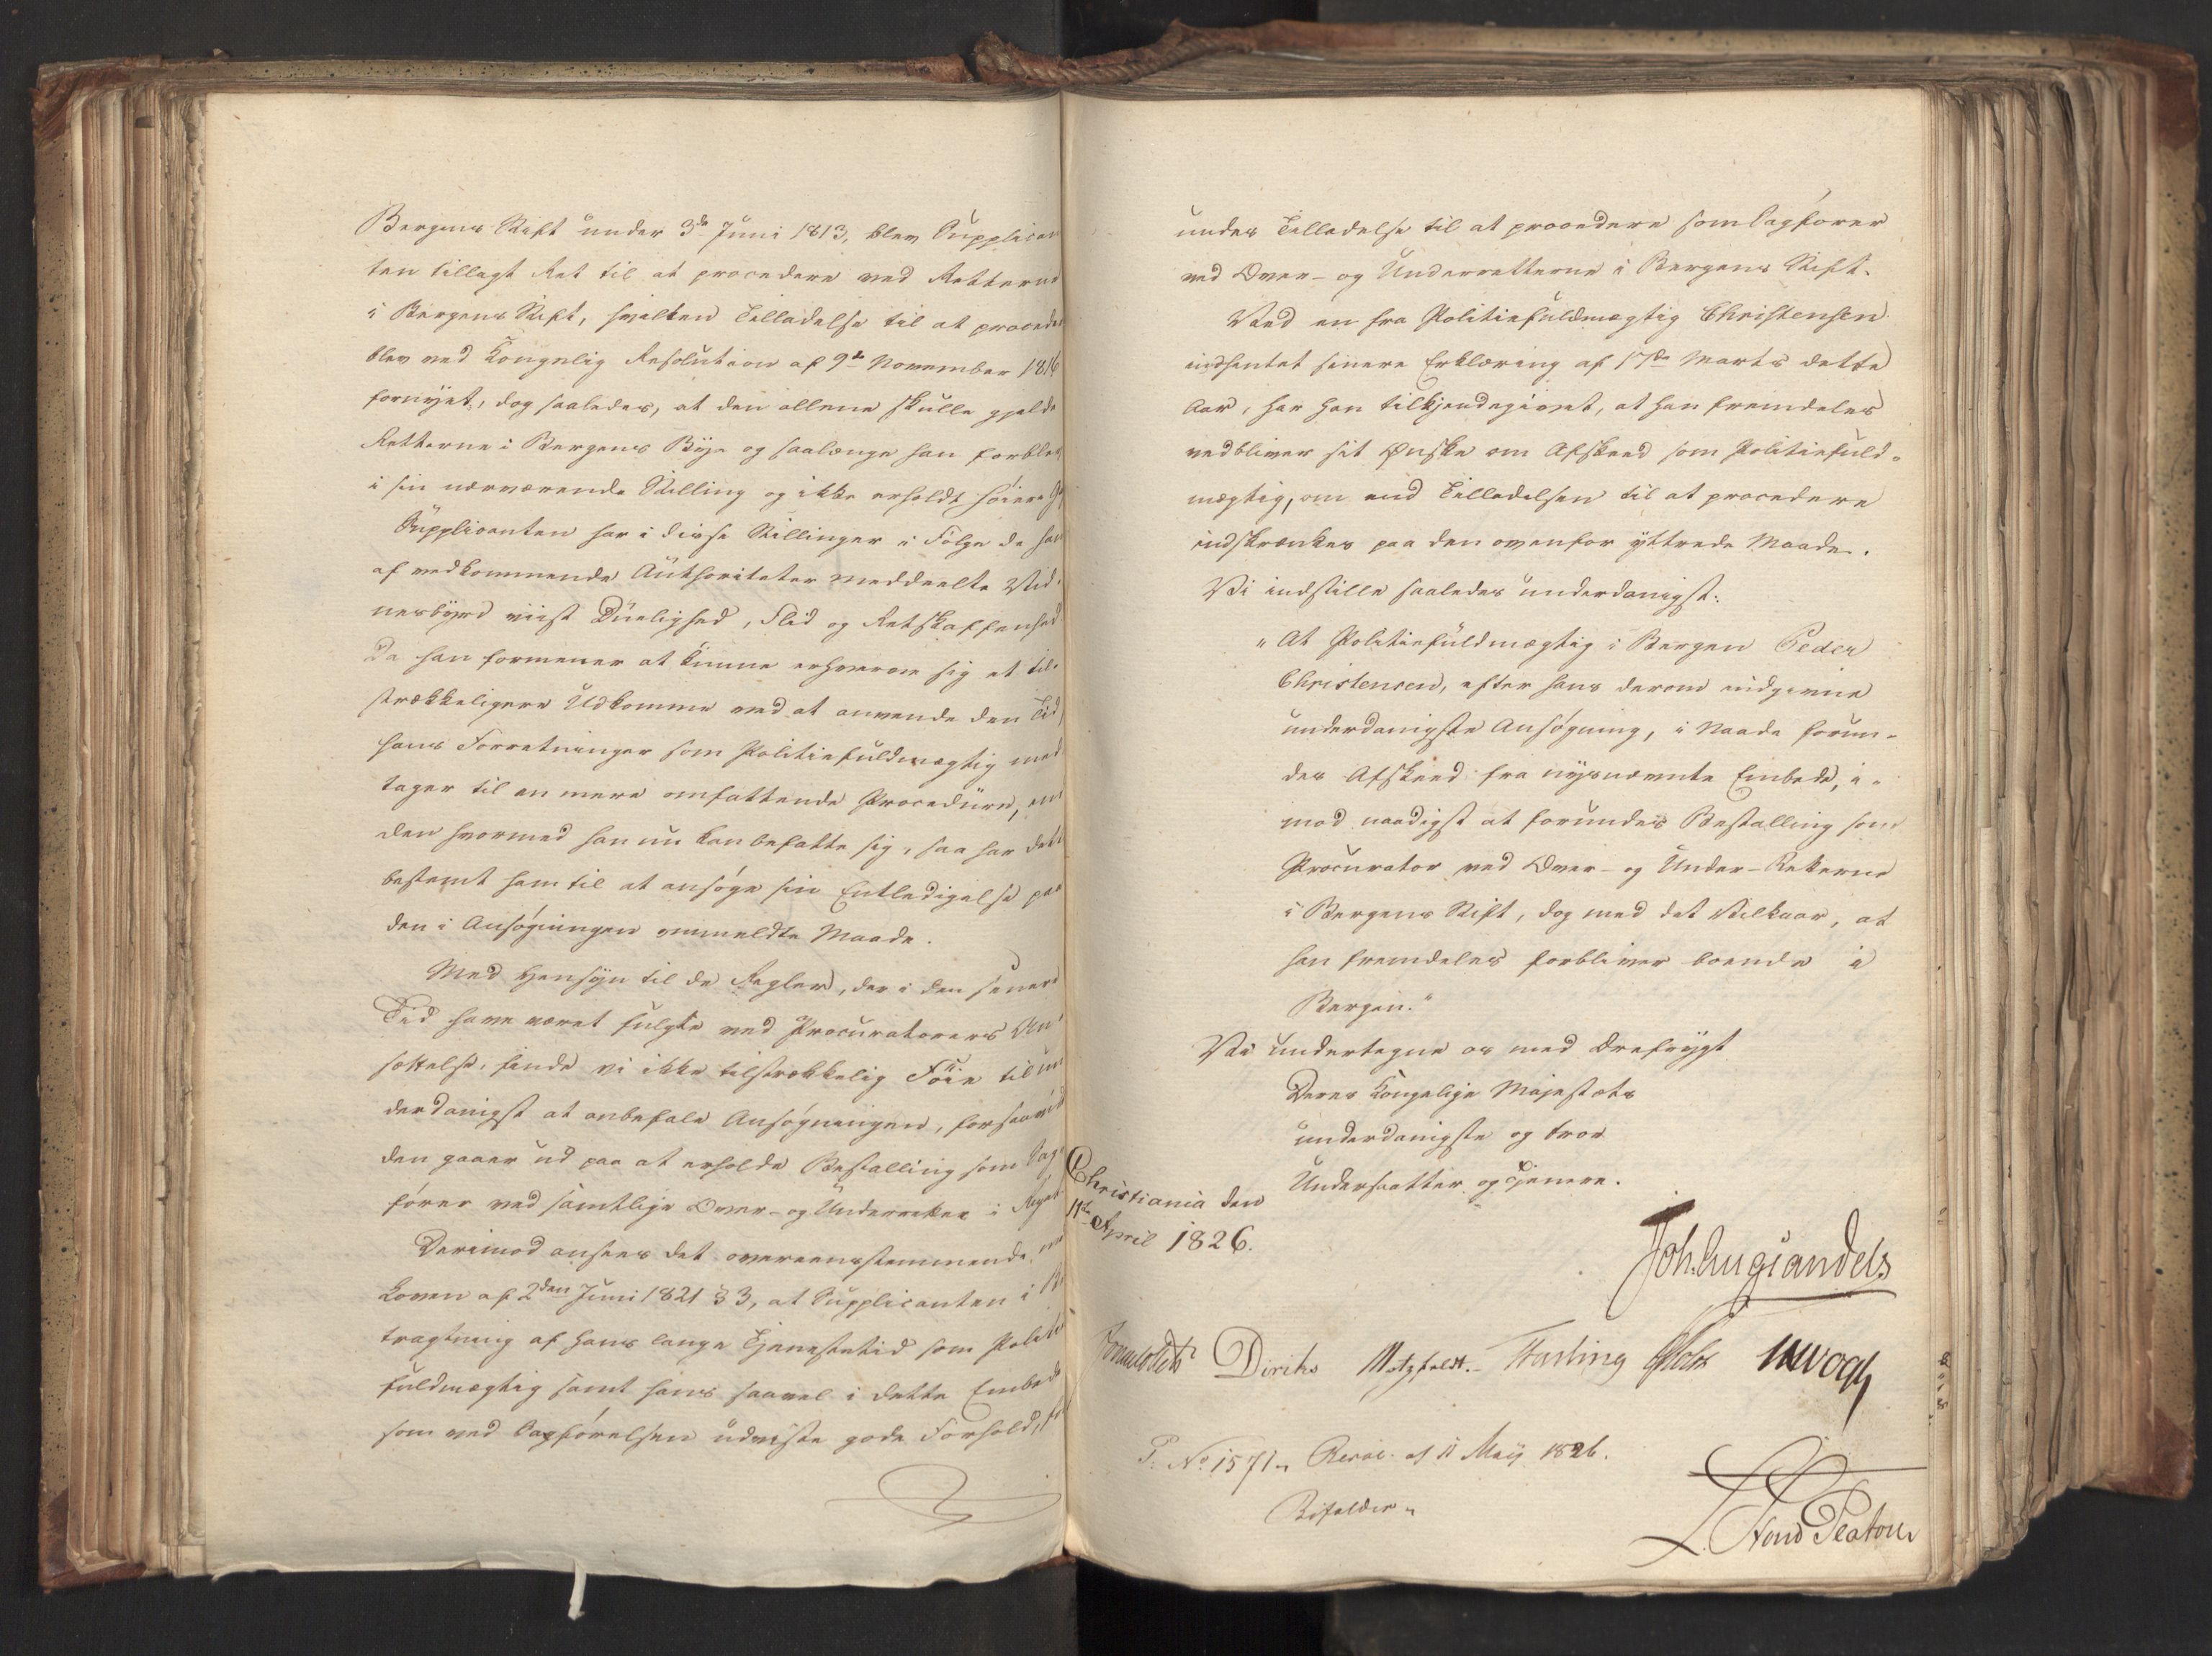 Bergens Stift under 3de Juni 1813, blev Supplican
ten tillagt Ret til at procedere ved Retterne
i Bergens Stift, hvilken Tilladelse til at procede
blev ved Kongelig Resolution af 9de November 1816
fornyet, dog saaledes, at den allene skulle gjelde
Retterne i Bergens Bye og saalænge han forblev
i sin nærværende Stilling og ikke erholdt høiere
Supplicanten har i disse Stillinger i Følge de ham
af vedkommende Authoriteter meddeelte Vid-
nesbyrd viist Duelighed, Flid og Retskaffenhed
Da han formener at kunne erhverve sig et til-
strækkeligere Udkomme ved at anvende den Tid,
hans Forretninger som Politiefuldmægtig med
tager til en mere omfattende Procedure, end
den hvormed han nu kan befatte sig, saa har dette
bestemt ham til at ansøge sin Entledigelse paa
den i Ansøgningen ommeldte Maade.
Med Hensyn til de Regler, der i den senere
Tid have været fulgte ved Procuratorers An-
sættelse, finde vi ikke tilstrækkelig Føie til un
derdanigst at anbefale Ansøgningen, forsaavidt
den gaaer ud paa at erholde Bestalling som Sag-
fører ved samtlige Over- og Underretter i Riget.
Derimod ansees det overeensstemmende med
Loven af 2den Juni 1821 § 3, at Supplicanten i Be
tragtning af hans lange Tjenestetid som Politie
fuldmægtig samt hans saavel i dette Embede
som ved Sagførelsen udviste gode Forhold,
undes Tilladelse til at procedere som Sagfører
ved Over- og Underretterne i Bergens Stift.
Ved en fra Politiefuldmægtig Christensen
indhentet senere Erklæring af 17de Marts dette
Aar, har han tilkjendegivet, at han fremdeles
vedbliver sit Ønske om Afskeed som Politiefuld-
mægtig, om end Tilladelsen til at procedere
indskrænkes paa den ovenfor yttrede Maade.
Vi indstille saaledes underdanigst:
"At Politiefuldmægtig i Bergen Peder
Christensen, efter hans derom indgivne
underdanigste Ansøgning, i Naade forun-
des Afskeed fra nysnævnte Embede, i-
mod naadigst at forundes Bestalling som
Procurator ved Over- og Under-Retterne
i Bergens Stift, dog med det Vilkaar, at
han fremdeles forbliver boende i
Bergen."
Vi undertegne os med Ærefrygt
Deres Kongelige Majestæts
underdanigste og troe
Undersaatter og Tjenere.
Christiania den
11te April 1826.
Joh. Aug. Sandels
Sommerfeldt Diriks Motzfeldt. Fasting JHVogt
P. No 1571. Resol. af 11 May 1826.
Bifaldes.